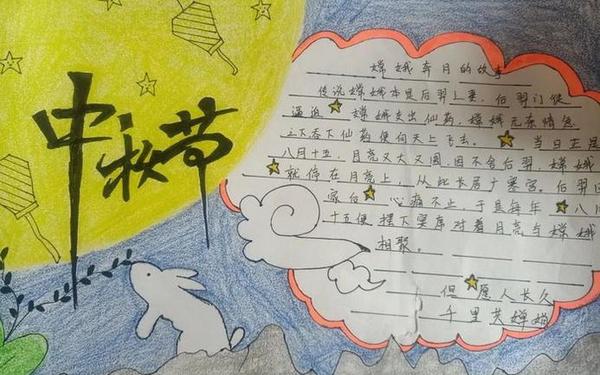 中秋节
嫦娥奔月的故事
传说嫦娥本是后羿之妻，后羿
逼迫 嫦娥交出仙药，嫦娥无奈情急
之下吞下仙药便向天上飞去。 当日正是
八月十五，月亮又大又圆，因不舍后羿 嫦娥
就停在月亮上，从此长居广寒宫，后羿回
家后 心痛不止 于是每年 八月
十五便摆下宴席对着月亮与嫦娥
相聚。
但愿人长久
千里共婵娟